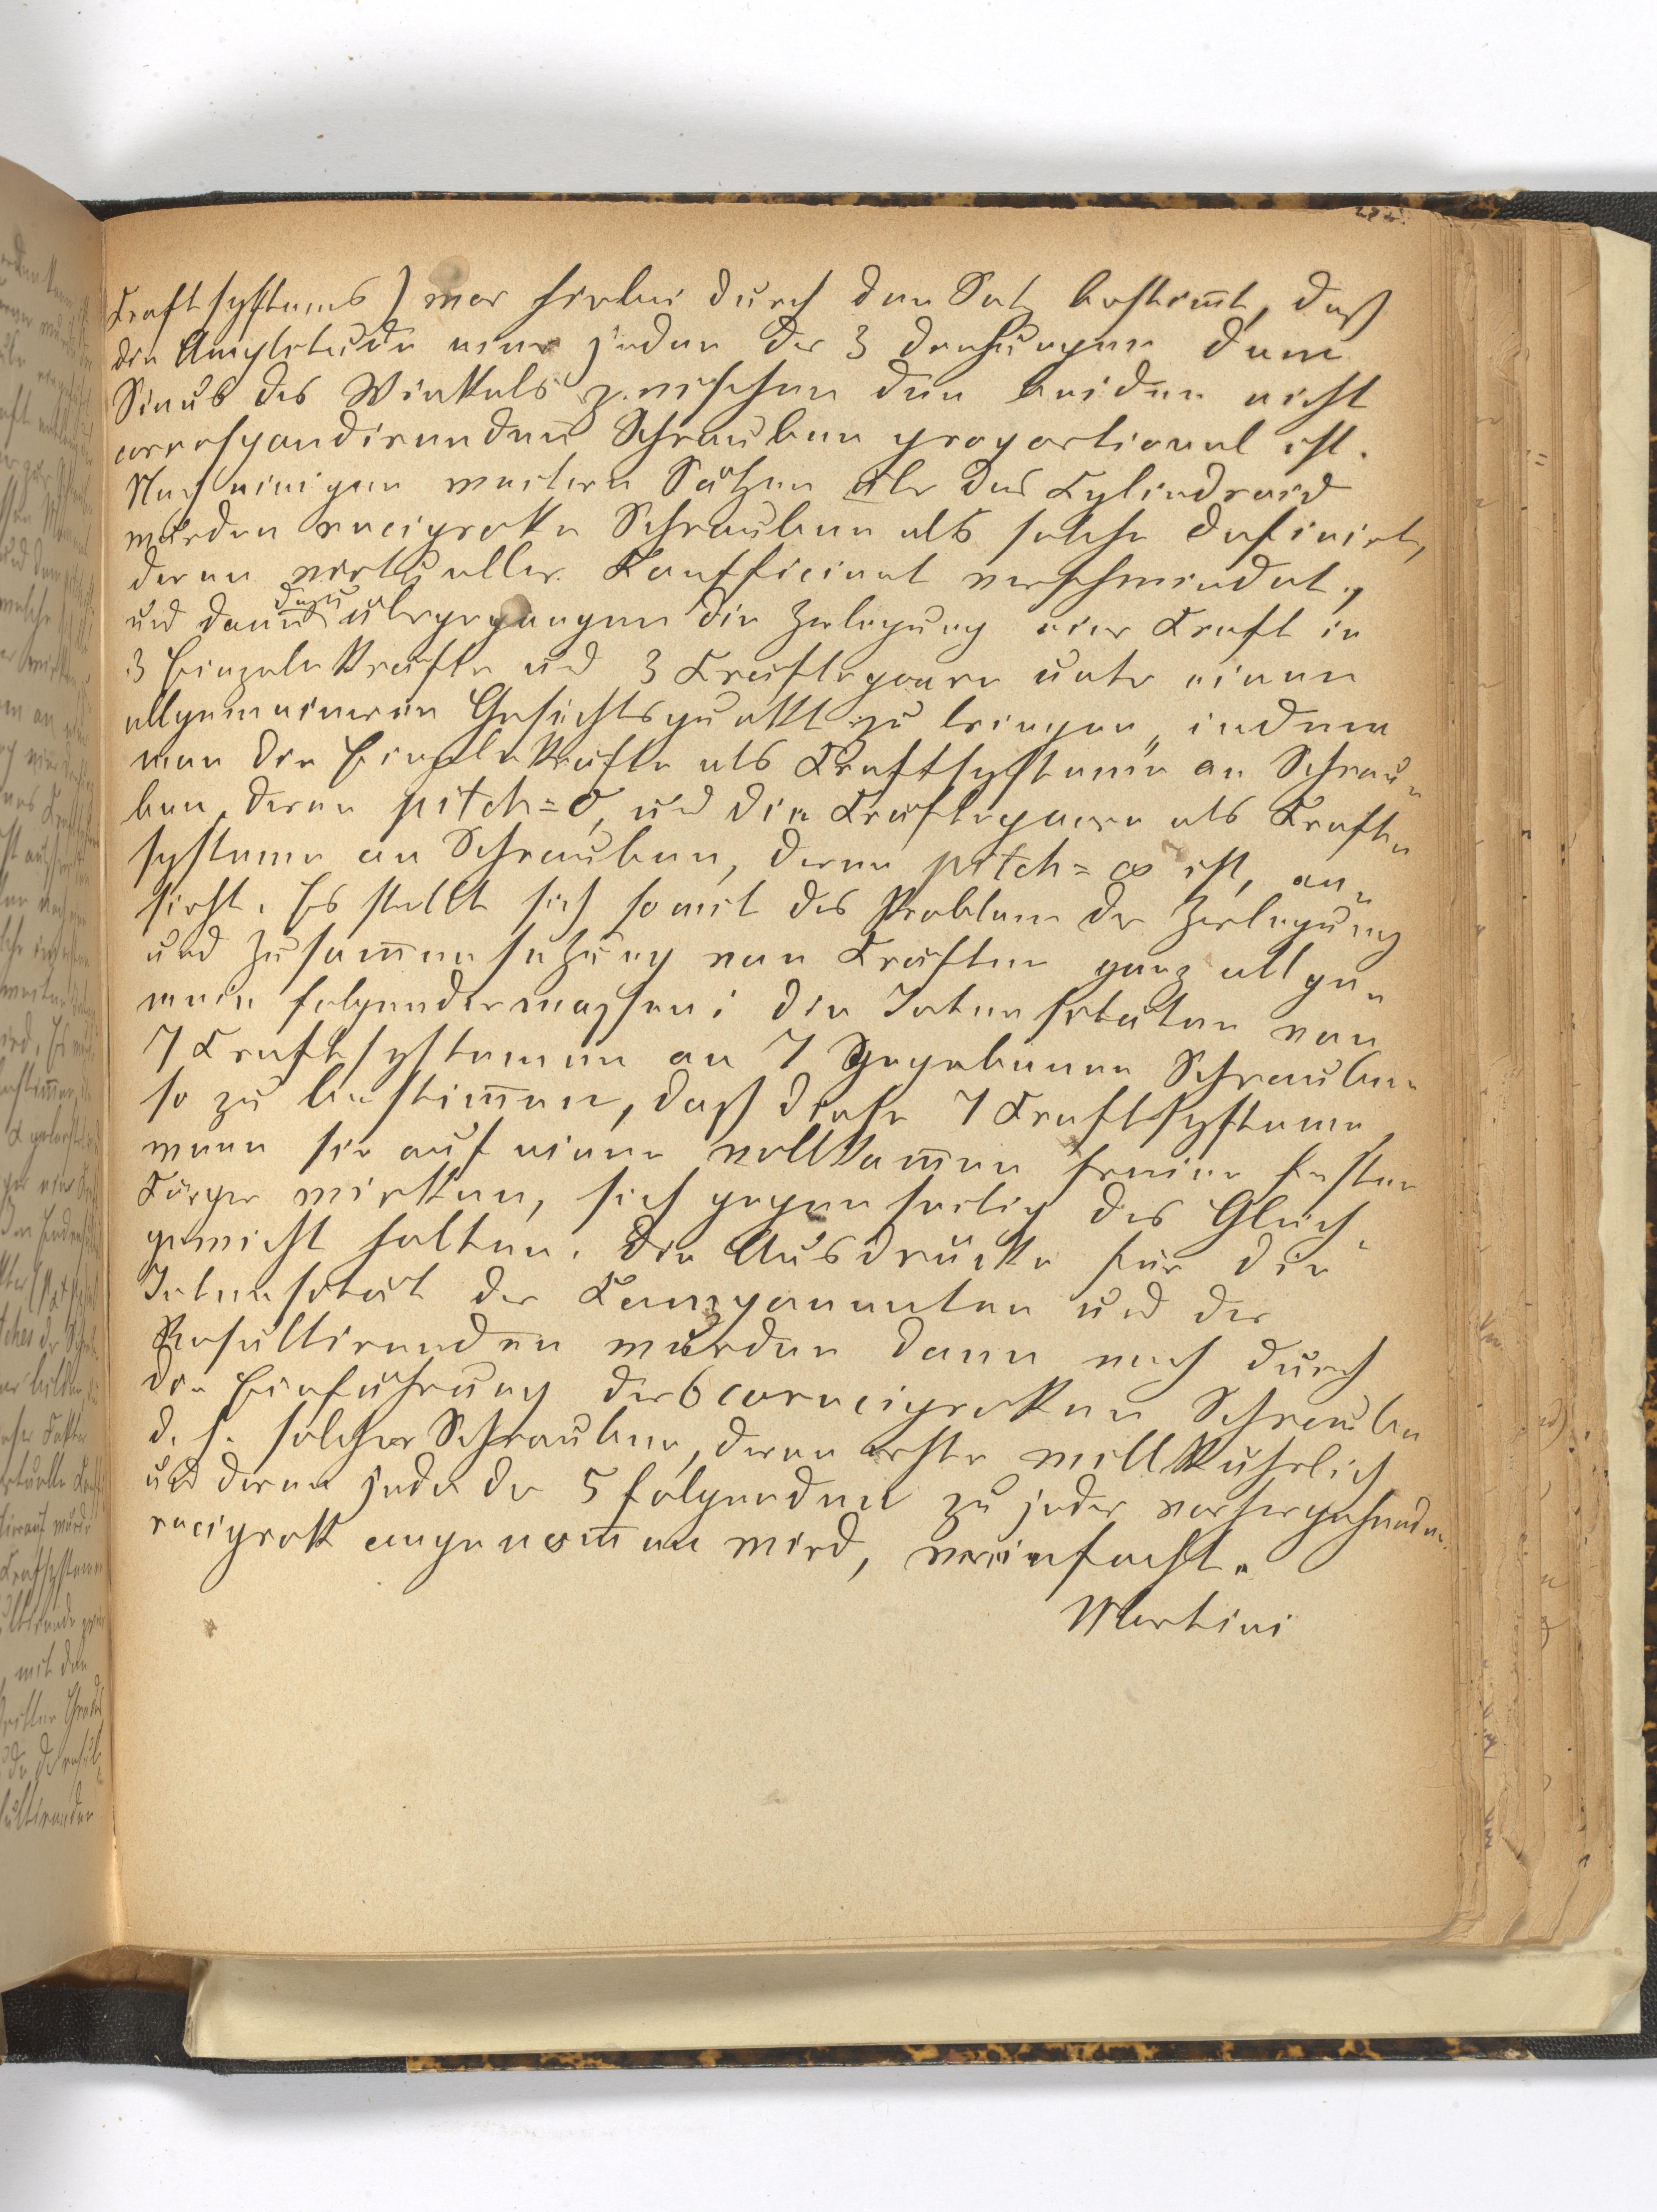 Kraftsystems) war hierbei durch den Satz bestim̅t, daß
die Amplitude einer jeden der 3 Drehungen dem
Sinus des Winkels zwischen den beiden nicht
correspondirenden Schrauben proportional ist.
Nach einigen weitern Sätzen über das Cylindroid
wurden reciproke Schrauben als solche definirt,
deren virtueller Coefficient verschwindet,
und dann dazu übergegangen die Zerlegung einer Kraft in
3 Einzelnkräfte und 3 Kräftepaare unter einen
allgemeineren Gesichtspunkt zu bringen, indem
man die Einzelnkräfte als Kraftsysteme an Schrau-
ben, deren pitch = 0, und die Kräftepaare als Kraft-
systeme an Schrauben, deren pitch = ∞ ist, an-
sieht. Es stellt sich somit das Problem der Zerlegung
und Zusam̅ensetzung von Kräften ganz allge-
mein folgendermassen: die Intensitäten von
7 Kraftsystemen an 7 gegebenen Schrauben
so zu bestim̅en, daß diese 7 Kraftsysteme,
wenn sie auf einen vollkom̅en freien festen
Körper wirken, sich gegenseitig das Gleich-
gewicht halten. Die Ausdrücke für die
Intensität der Componenten und der
Resultirenden wurden dann noch durch
die Einführung der 6 coreciproken Schrauben
d. h. solcher Schrauben, deren erste willkührlich
und deren jede der 5 folgenden zu jeder vorhergehenden
reciprok angenom̅en wird, vereinfacht.
Martini